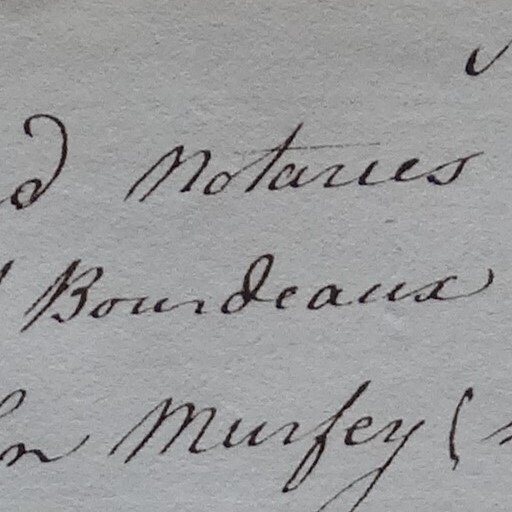 Notaries
Bourdeaux
Murfey (